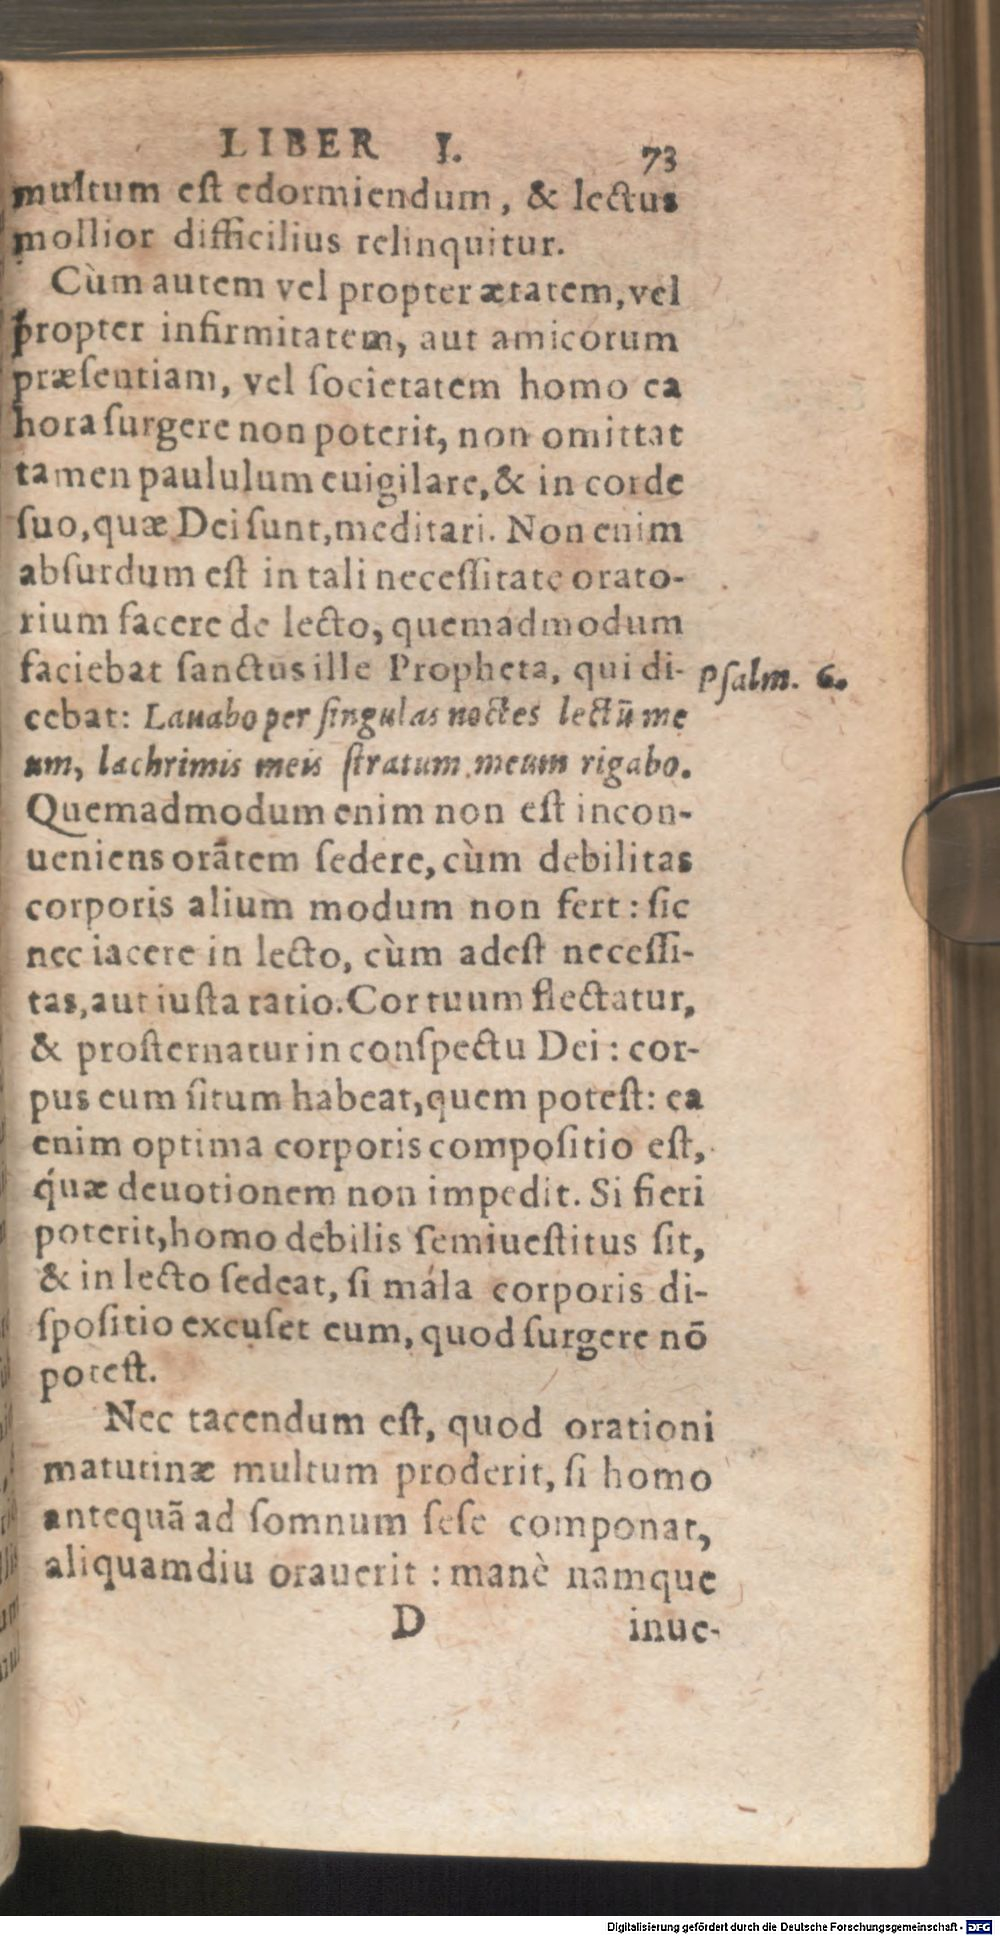 LIBER I. 73
multum eſt edormiendum, & lectus
mollior difficilius relinquitur.
Cùm autem vel propter ætatem, vel
propter infirmitatem, aut amicorum
præſentiam, vel ſocietatem homo ea
hora ſurgere non poterit, non omittat
tamen paululum euigilare, & in corde
ſuo, quæ Dei ſunt, meditari. Non enim
abſurdum eſt in tali neceſſitate orato-
rium facere de lecto, quemadmodum
faciebat ſanctus ille Propheta, qui di-
Pſalm. 6.
cebat: Lauabo per ſingulas noctes lectū me
um, lachrimis meis ſtratum meum rigabo.
Quemadmodum enim non eſt incon-
ueniens orātem ſedere, cùm debilitas
corporis alium modum non fert: ſic
nec iacere in lecto, cùm adeſt neceſſi-
tas, aut iuſta ratio. Cor tuum flectatur,
& proſternatur in conſpectu Dei: cor-
pus eum ſitum habeat, quem poteſt: ea
enim optima corporis compoſitio eſt,
quæ deuotionem non impedit. Si fieri
poterit, homo debilis ſemiueſtitus ſit,
& in lecto ſedeat, ſi mala corporis di-
ſpoſitio excuſet eum, quod ſurgere nō
poteſt.
Nec tacendum eſt, quod orationi
matutinæ multum proderit, ſi homo
antequā ad ſomnum ſeſe componat,
aliquamdiu orauerit: manè namque
D inue-
Digitalisierung gefördert durch die Deutsche Forschungsgemeinschaft - DFG